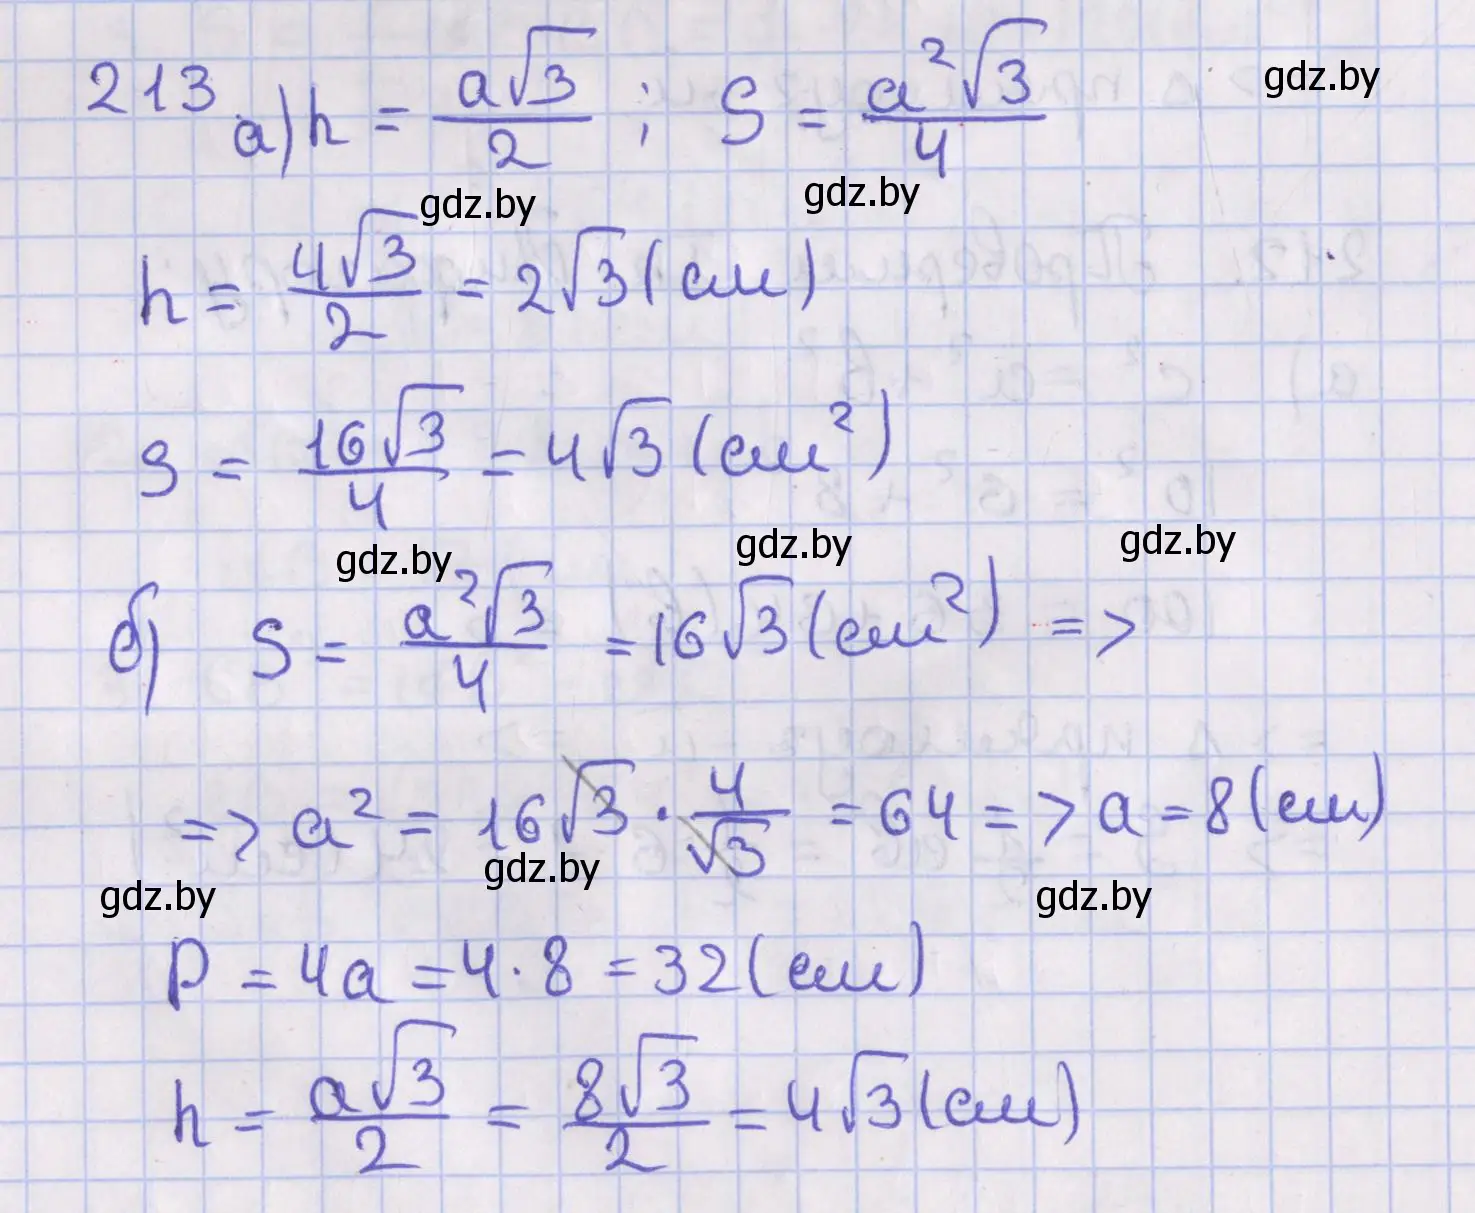 213 а) h = a√3/2 ; S = a²√3/4
gdz.by
gdz.by gdz.by
h = 4√3/2 = 2√3 (см)
S = 16√3/4 = 4√3 (см²)
gdz.by gdz.by gdz.by
б) S = a²√3/4 = 16√3 (см²) =>
=> a² = 16√3 · 4/√3 = 64 => a = 8 (см)
gdz.by gdz.by gdz.by
P = 4a = 4 · 8 = 32 (см)
h = a√3/2 = 8√3/2 = 4√3 (см)